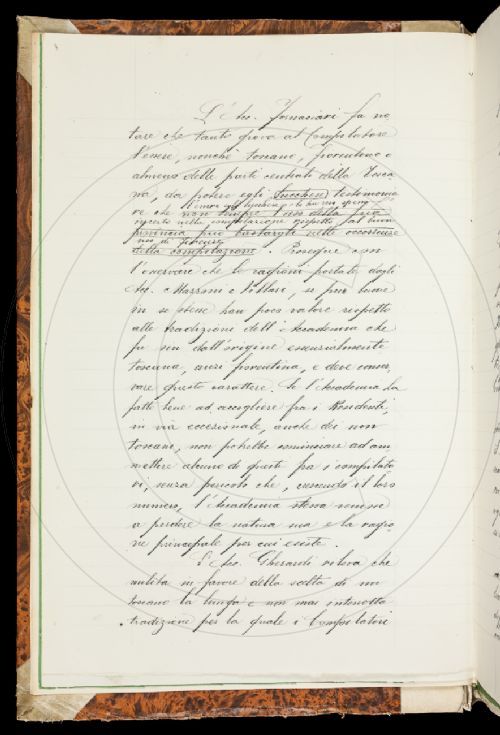 L'Acc. Fornaciari fa no
tare che tanto giova al Compilatore
l'essere, nonchè toscano, fiorentino o
almeno delle parti centrali della Tosca
na, da potere egli testimonia
re che non sempre l'uso della sua
provincia può bastargli nelle occorrenze
della compilazione. Prosegue con
l'osservare che le ragioni portate dagli
Acc. Mazzoni e Villari, se pur buone
in se stesse han poco valore rispetto
alla tradizione dell'Accademia che
fu sin dall'origine essenzialmente
toscana, anzi fiorentina, e deve conser
vare questo carattere. Se l'Accademia ha
fatto bene ad accogliere fra i Residenti,
in via eccezionale, anche dei non
toscani, non potrebbe cominciare ad am
mettere alcuno di questi fra i compilato
ri, senza pericolo che, crescendo il loro
numero, l'Accademia stessa venisse
a perdere la natura sua e la ragio
ne principale per cui esiste.
L'Acc. Gherardi rileva che
milita in favore della scelta di un
toscano la lunga e non mai interrotta
tradizione per la quale i Compilatori